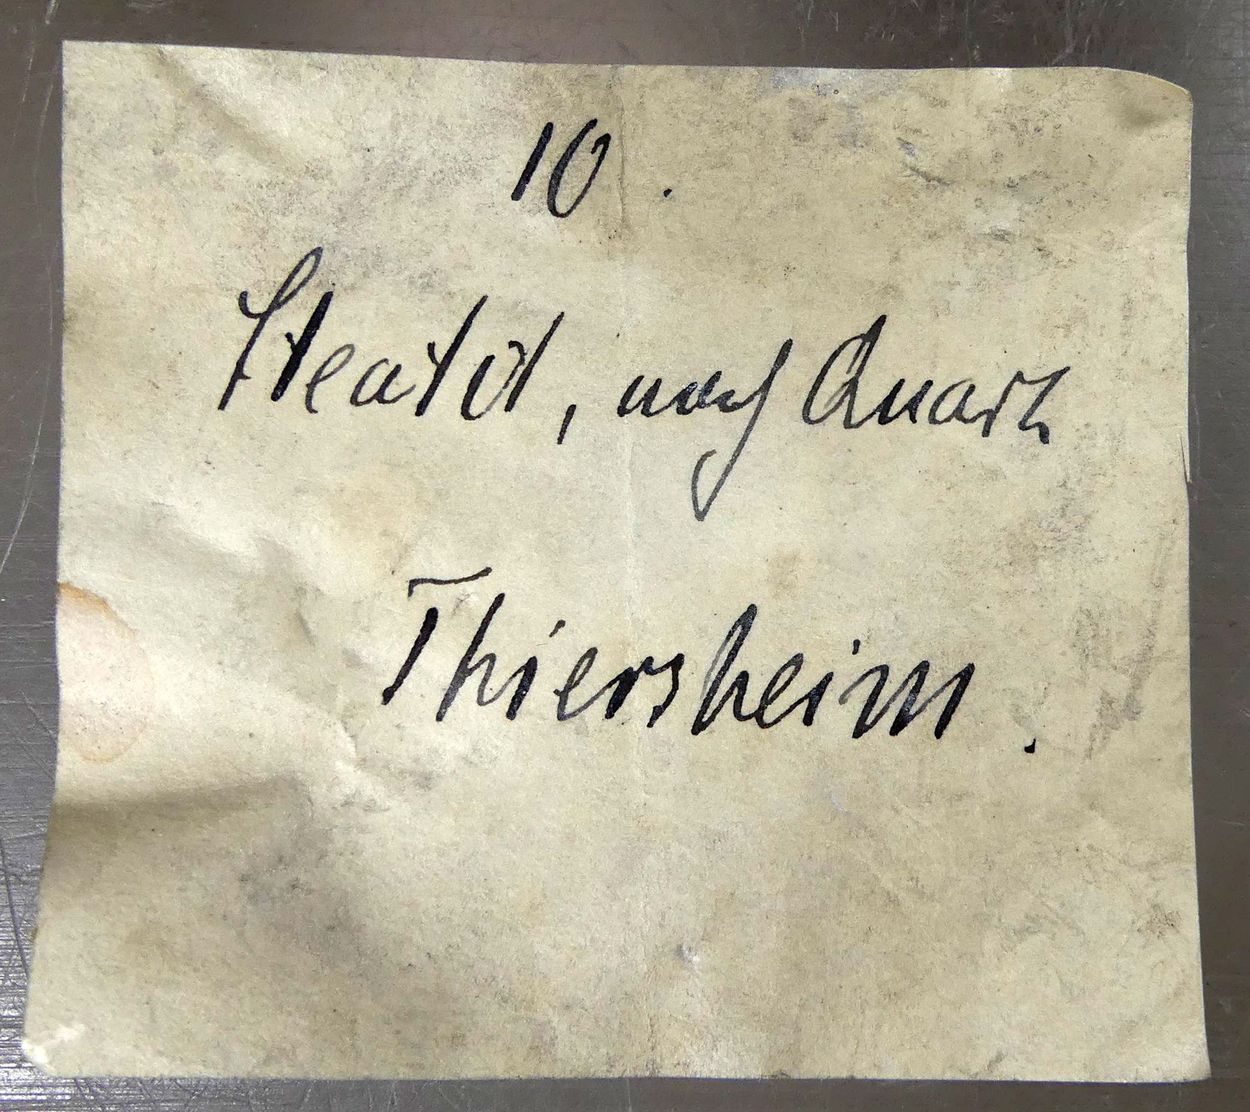 10.
Steatit, nach Quarz
Thiersheim.